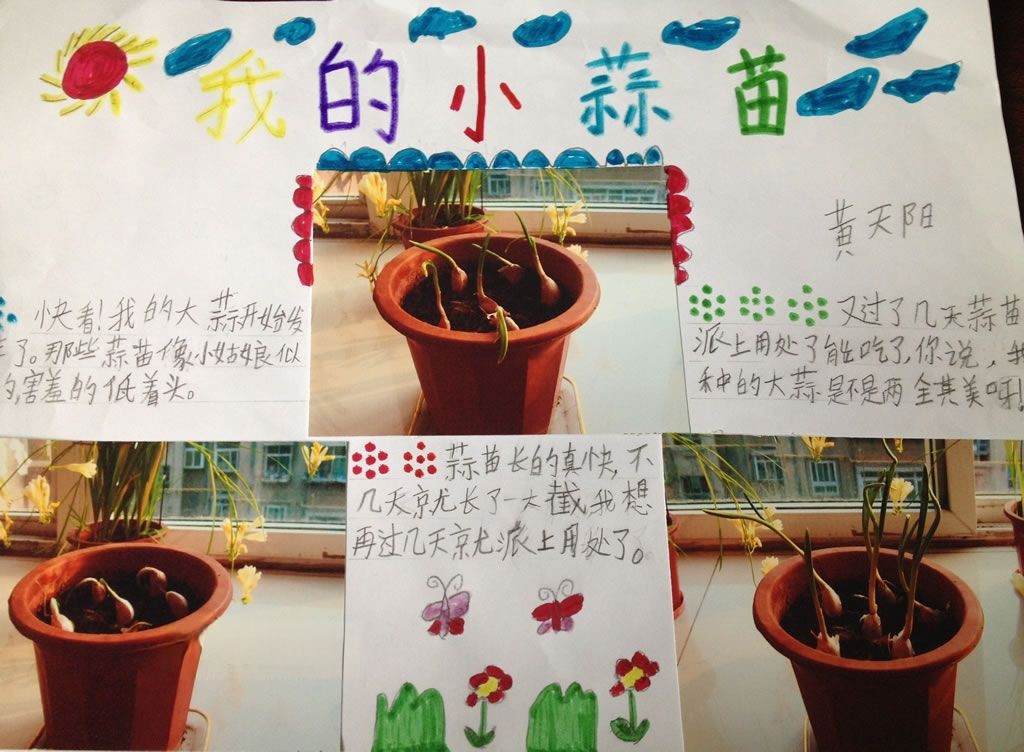 我的小蒜苗
黄天阳
快看!我的大蒜开始发
芽了。那些蒜苗像小姑娘似
的,害羞的低着头。
蒜苗长的真快,不
几天就长了一大截我想
再过几天就派上用处了。
又过了几天蒜苗
派上用处了能吃了,你说,我
种的大蒜是不是两全其美呀!